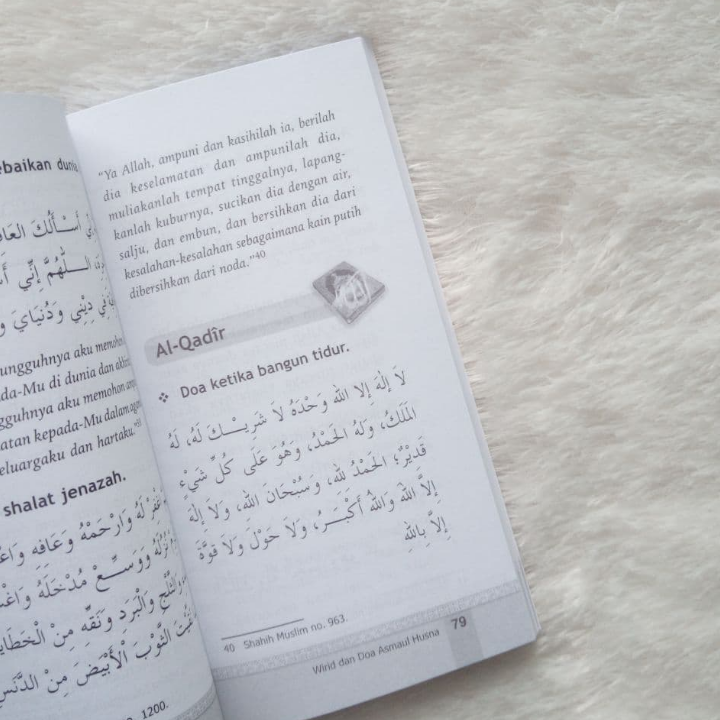 ebaikan dunia
أَسْأَلُكَ العَا
اللَّهُمَّ إِنِّي
دِيْنِي وَدُنْيَايَ
ungguhnya aku memoho
ada-Mu di dunia dan akhi
gguhnya aku memohon am
atan kepada-Mu dalam aga
eluargaku dan hartaku."
shalat jenazah.
لَهُ وَارْحَمْهُ وَعَافِهِ
نُزُلَهُ وَوَسِّعْ مُدْخَلَهُ
وَالْبَرَدِ وَنَقِّهِ مِنْ الْخَطَايَا
الثَّوْبَ الْأَبْيَضَ مِنْ الدَّنَسِ
1200.
"Ya Allah, ampuni dan kasihilah ia, berilah
dia keselamatan dan ampunilah dia,
muliakanlah tempat tinggalnya, lapang-
kanlah kuburnya, sucikan dia dengan air,
salju, dan embun, dan bersihkan dia dari
kesalahan-kesalahan sebagaimana kain putih
dibersihkan dari noda."40
Al-Qadîr
❖ Doa ketika bangun tidur.
لاَ إِلَهَ إِلاَّ اللهُ وَحْدَهُ لاَ شَرِيْكَ لَهُ، لَهُ
المُلْكُ، وَلَهُ الحَمْدُ، وَهُوَ عَلَى كُلِّ شَيْءٍ
قَدِيْرٌ؛ الحَمْدُ للهِ، وَسُبْحَانَ اللهِ، وَلاَ إِلَهَ
إِلاَّ اللهُ وَاللهُ أَكْبَرُ، وَلاَ حَوْلَ وَلاَ قُوَّةَ
إِلاَّ بِاللهِ
40 Shahih Muslim no. 963.
Wirid dan Doa Asmaul Husna 79